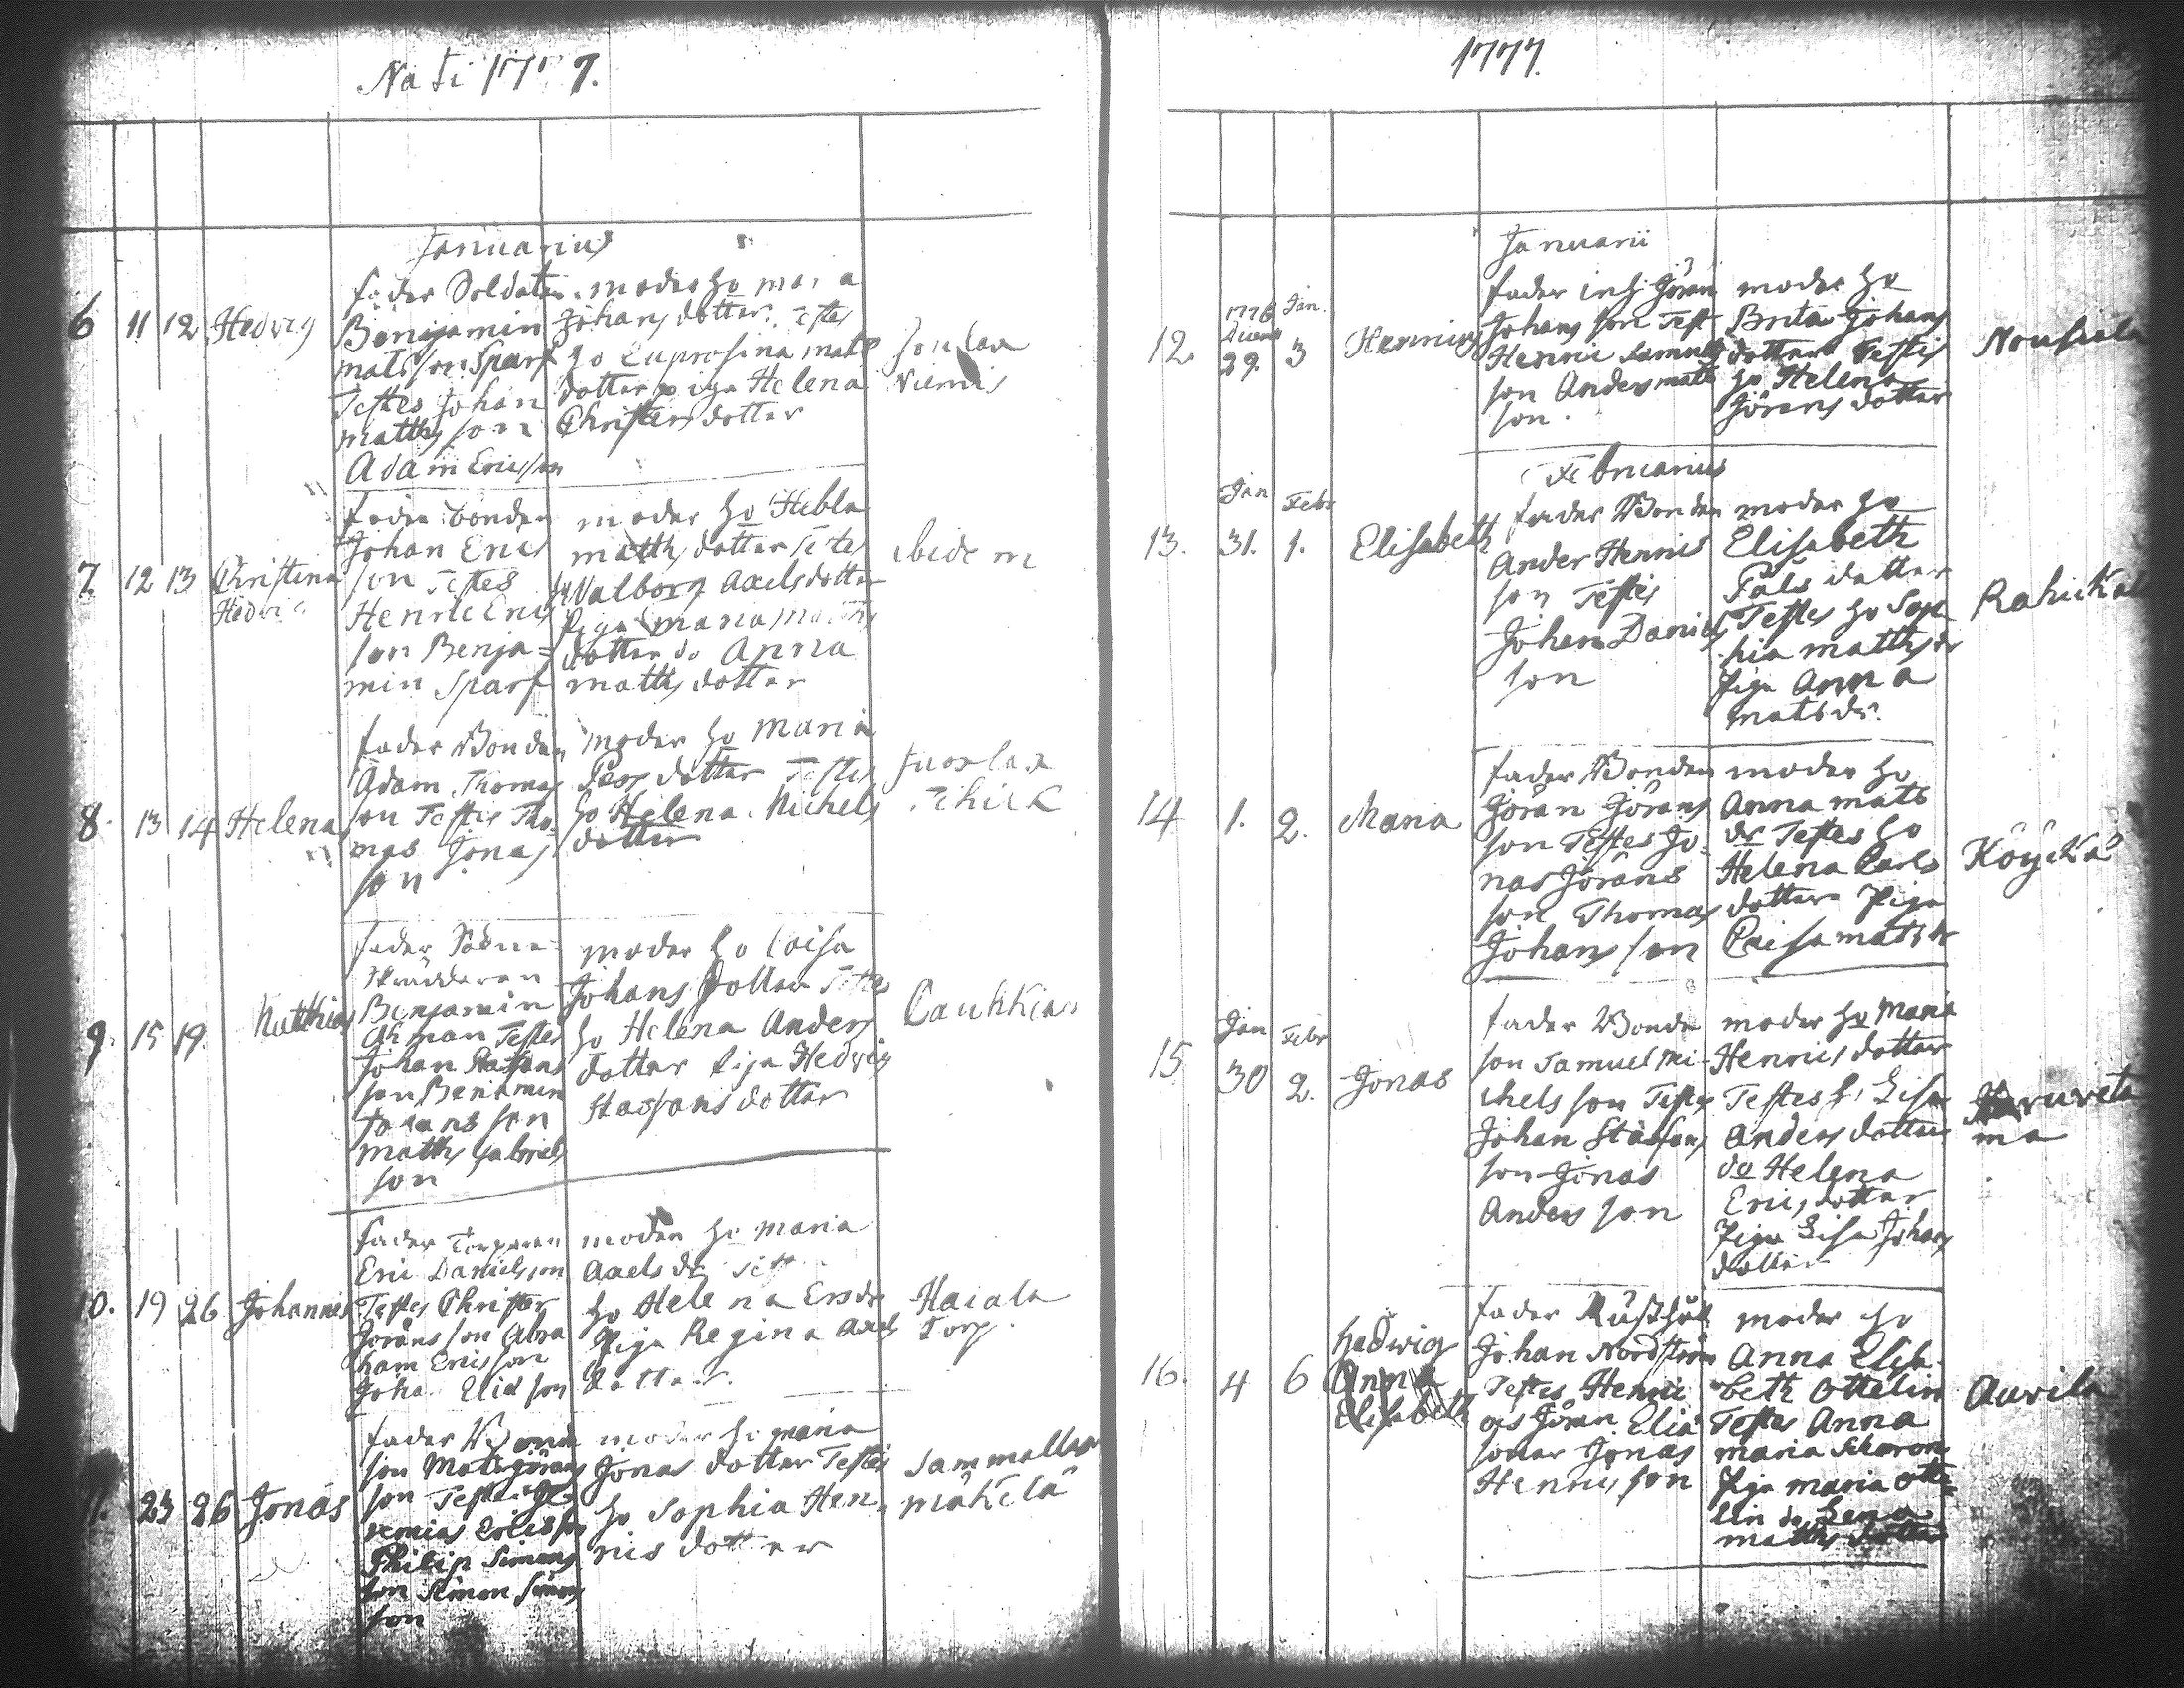 Nati 1777.
Januarius
6 11 12 Hedvig
fader Soldaten
Benjamin
mats son Sparf
Testes Johan
matths son
Adam Ericsson
moder ho maria
Johans dotter. Testes
ho Euprosina mats
dotter piga Helena
Christers dotter
Niemis
7. 12 13 Christina
Hedvig
fader bonden
Johan Erics
son Testes
Henric Erics
son Benja=
min Sparf
moder ho Hebla
matths dotter Testes
Walborg Axelsdotter
Piga maria matths
dotter do Anna
matths dotter
ibidem
8. 13 14 Helena
fader Bonden
Adam Thomas
son Testes Tho-
mas Jonas
son
moder ho Maria
dotter Testes
ho Helena Michels
dotter
9. 15 19. Matthias
fader
Skräddaren
Benjamin
Testes
Johan Staffans
son Benjamin
Johans son
matths Gabriels
son
moder ho Caisa
Johans dotter Testes
ho Helena Anders
dotter Piga Hedvig
Staffans dotter
10. 19 26 Johannes
fader Torparen
Eric Danielsson
Testes Christer
Jörans son Abra
ham Ericsson
Johan Elias son
moder ho Maria
Axels dr Test
ho Helena Ersdr
Piga Regina Axels
dotter.
Haiala
Torp.
11. 23 26 Jonas
fader Bonde
son Mats Jörans
son Testes Je
remias Ericsson
Philip Simons
son Simon Simons
son
moder ho maria
Jonas dotter Testes
ho Sophia Hen-
rics dotter
Sammallas
mäkelä
1777.
Januarii
12. 1776 Jan.
29. 3 Henricus
fader inh: Jöran
Johans son Test
Henric Samuels
son Anders matts
son.
moder ho
Brita Johans
dotter Testes
ho Helena
Jörans dotter
Nousiala
Februarius
Jan Febr
13. 31. 1. Elisabeth
fader Bonden
Ander Henrics
son Testes
Johan Daniels
son
moder ho
Elisabeth
Påls dotter
Testes ho Sop
hia matths dr
Piga Anna
mats dr.
14 1. 2. Maria
fader Bonden
Jöran Jörans
son Testes Jo-
nas Jörans
son Thomas
Johans son
moder ho
Anna mats
dr Testes ho
Helena Carls
dotter Piga
Caisa mats dr
Köykkä
Jan Febr
15 30 2. Jonas
fader Bonde
son Samuel Mi-
chels son Testes
Johan Staffans
son Jonas
Anders son
moder ho Maria
Henrics dotter
Testes h. Lisa
Anders dotter
do Helena
Erics dotter
Piga Lisa Johans
dotter
ma
16. 4 6 Hedwig
Anna
Elisabeth
fader Rusthål
Johan Nordström
Testes Henric
os Jöran Elia
soner Jonas
Henrics son
moder ho
Anna Elisa-
beth Ottelin
Testes Anna
maria
Piga maria Otte-
lin do Lena
matths dotter
Aurila